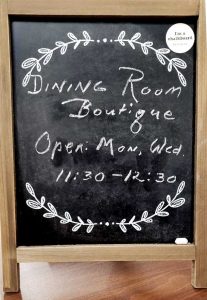 I'm a
chalkboard
DINING ROOM
Boutique
Open: Mon, Wed
11:30-12:30